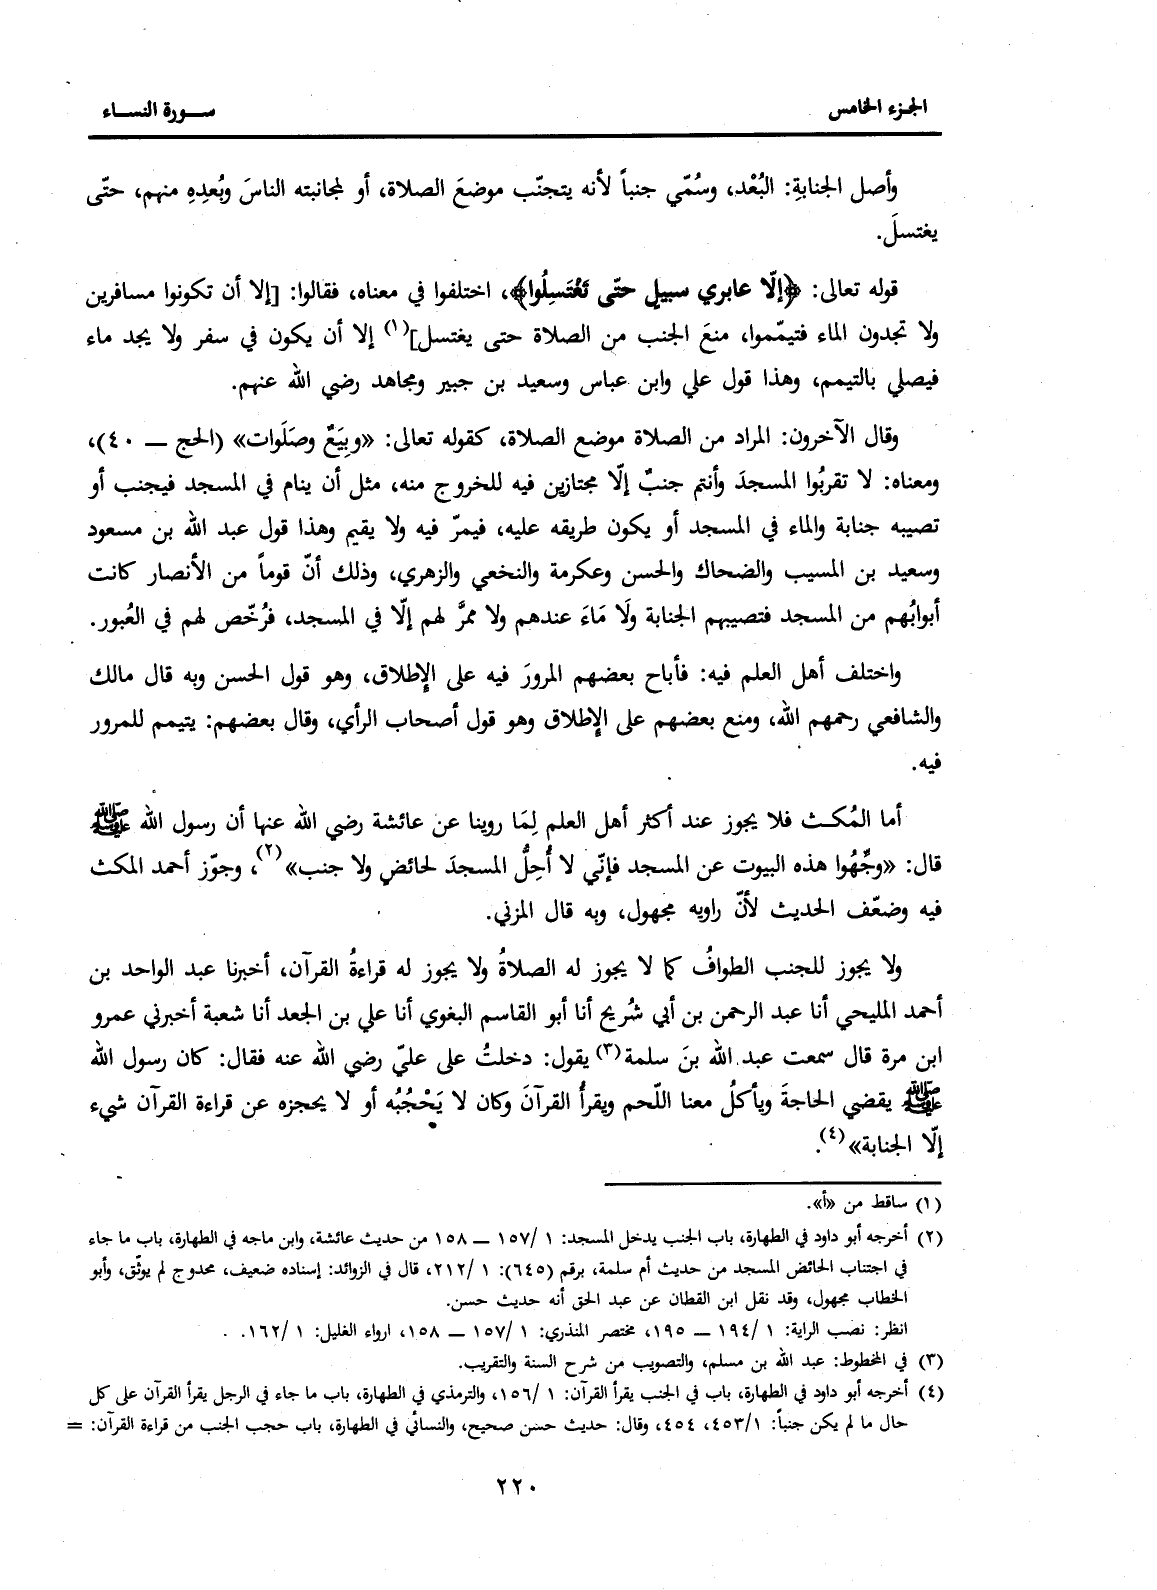 الجزء الخامس
سورة النساء
وأصل الجنابةِ: البُعْد، وسُمّي جنباً لأنه يتجنّب موضعَ الصلاة، أو لمجانبته الناسَ وبُعدِهِ منهم، حتّى
يغتسلَ.
قوله تعالى: ﴿إلّا عابري سبيلٍ حتّى تَغْتَسِلُوا﴾، اختلفوا في معناه، فقالوا: [إلا أن تكونوا مسافرين
ولا تجدون الماء فتيمّموا، منعَ الجنب من الصلاة حتى يغتسل](١) إلا أن يكون في سفر ولا يجد ماء
فيصلي بالتيمم، وهذا قول علي وابن عباس وسعيد بن جبير ومجاهد رضي الله عنهم.
وقال الآخرون: المراد من الصلاة موضع الصلاة، كقوله تعالى: «وبِيَعٌ وصَلَوات» (الحج ــ ٤٠)،
ومعناه: لا تقربُوا المسجدَ وأنتم جنبٌ إلّا مجتازين فيه للخروج منه، مثل أن ينام في المسجد فيجنب أو
تصيبه جنابة والماء في المسجد أو يكون طريقه عليه، فيمرّ فيه ولا يقيم وهذا قول عبد الله بن مسعود
وسعيد بن المسيب والضحاك والحسن وعكرمة والنخعي والزهري، وذلك أنّ قوماً من الأنصار كانت
أبوابُهم من المسجد فتصيبهم الجنابة ولَا مَاءَ عندهم ولا ممرَّ لهم إلّا في المسجد، فرُخّص لهم في العُبور.
واختلف أهل العلم فيه: فأباح بعضهم المرورَ فيه على الإطلاق، وهو قول الحسن وبه قال مالك
والشافعي رحمهم الله، ومنع بعضهم على الإطلاق وهو قول أصحاب الرأي، وقال بعضهم: يتيمم للمرور
فيه.
أما المُكث فلا يجوز عند أكثر أهل العلم لِمَا روينا عن عائشة رضي الله عنها أن رسول الله ﷺ
قال: «وجِّهُوا هذه البيوت عن المسجد فإنّي لا أُحِلُّ المسجدَ لحائض ولا جنب»(٢)، وجوّز أحمد المكث
فيه وضعّف الحديث لأنّ راويه مجهول، وبه قال المزني.
ولا يجوز للجنب الطوافُ كما لا يجوز له الصلاةُ ولا يجوز له قراءةُ القرآن، أخبرنا عبد الواحد بن
أحمد المليحي أنا عبد الرحمن بن أبي شُريح أنا أبو القاسم البغوي أنا علي بن الجعد أنا شعبة أخبرني عمرو
ابن مرة قال سمعت عبد الله بنَ سلمة(٣) يقول: دخلتُ على عليّ رضي الله عنه فقال: كان رسول الله
ﷺ يقضي الحاجةَ ويأكلُ معنا اللّحم ويقرأُ القرآنَ وكان لا يَحْجُبُه أو لا يحجزه عن قراءة القرآن شيء
إلّا الجنابة»(٤).
(١) ساقط من «أ».
(٢) أخرجه أبو داود في الطهارة، باب الجنب يدخل المسجد: ١ /١٥٧ ــ ١٥٨ من حديث عائشة، وابن ماجه في الطهارة، باب ما جاء
في اجتناب الحائض المسجد من حديث أم سلمة، برقم (٦٤٥): ١ /٢١٢، قال في الزوائد: إسناده ضعيف، محدوج لم يوثّق، وأبو
الخطاب مجهول، وقد نقل ابن القطان عن عبد الحق أنه حديث حسن.
انظر: نصب الراية: ١ /١٩٤ ــ ١٩٥، مختصر المنذري: ١ /١٥٧ ــ ١٥٨، ارواء الغليل: ١ /١٦٢.
(٣) في المخطوط: عبد الله بن مسلم، والتصويب من شرح السنة والتقريب.
(٤) أخرجه أبو داود في الطهارة، باب في الجنب يقرأ القرآن: ١ /١٥٦، والترمذي في الطهارة، باب ما جاء في الرجل يقرأ القرآن على كل
حال ما لم يكن جنباً: ١ /٤٥٣، ٤٥٤، وقال: حديث حسن صحيح، والنسائي في الطهارة، باب حجب الجنب من قراءة القرآن: =
٢٢٠